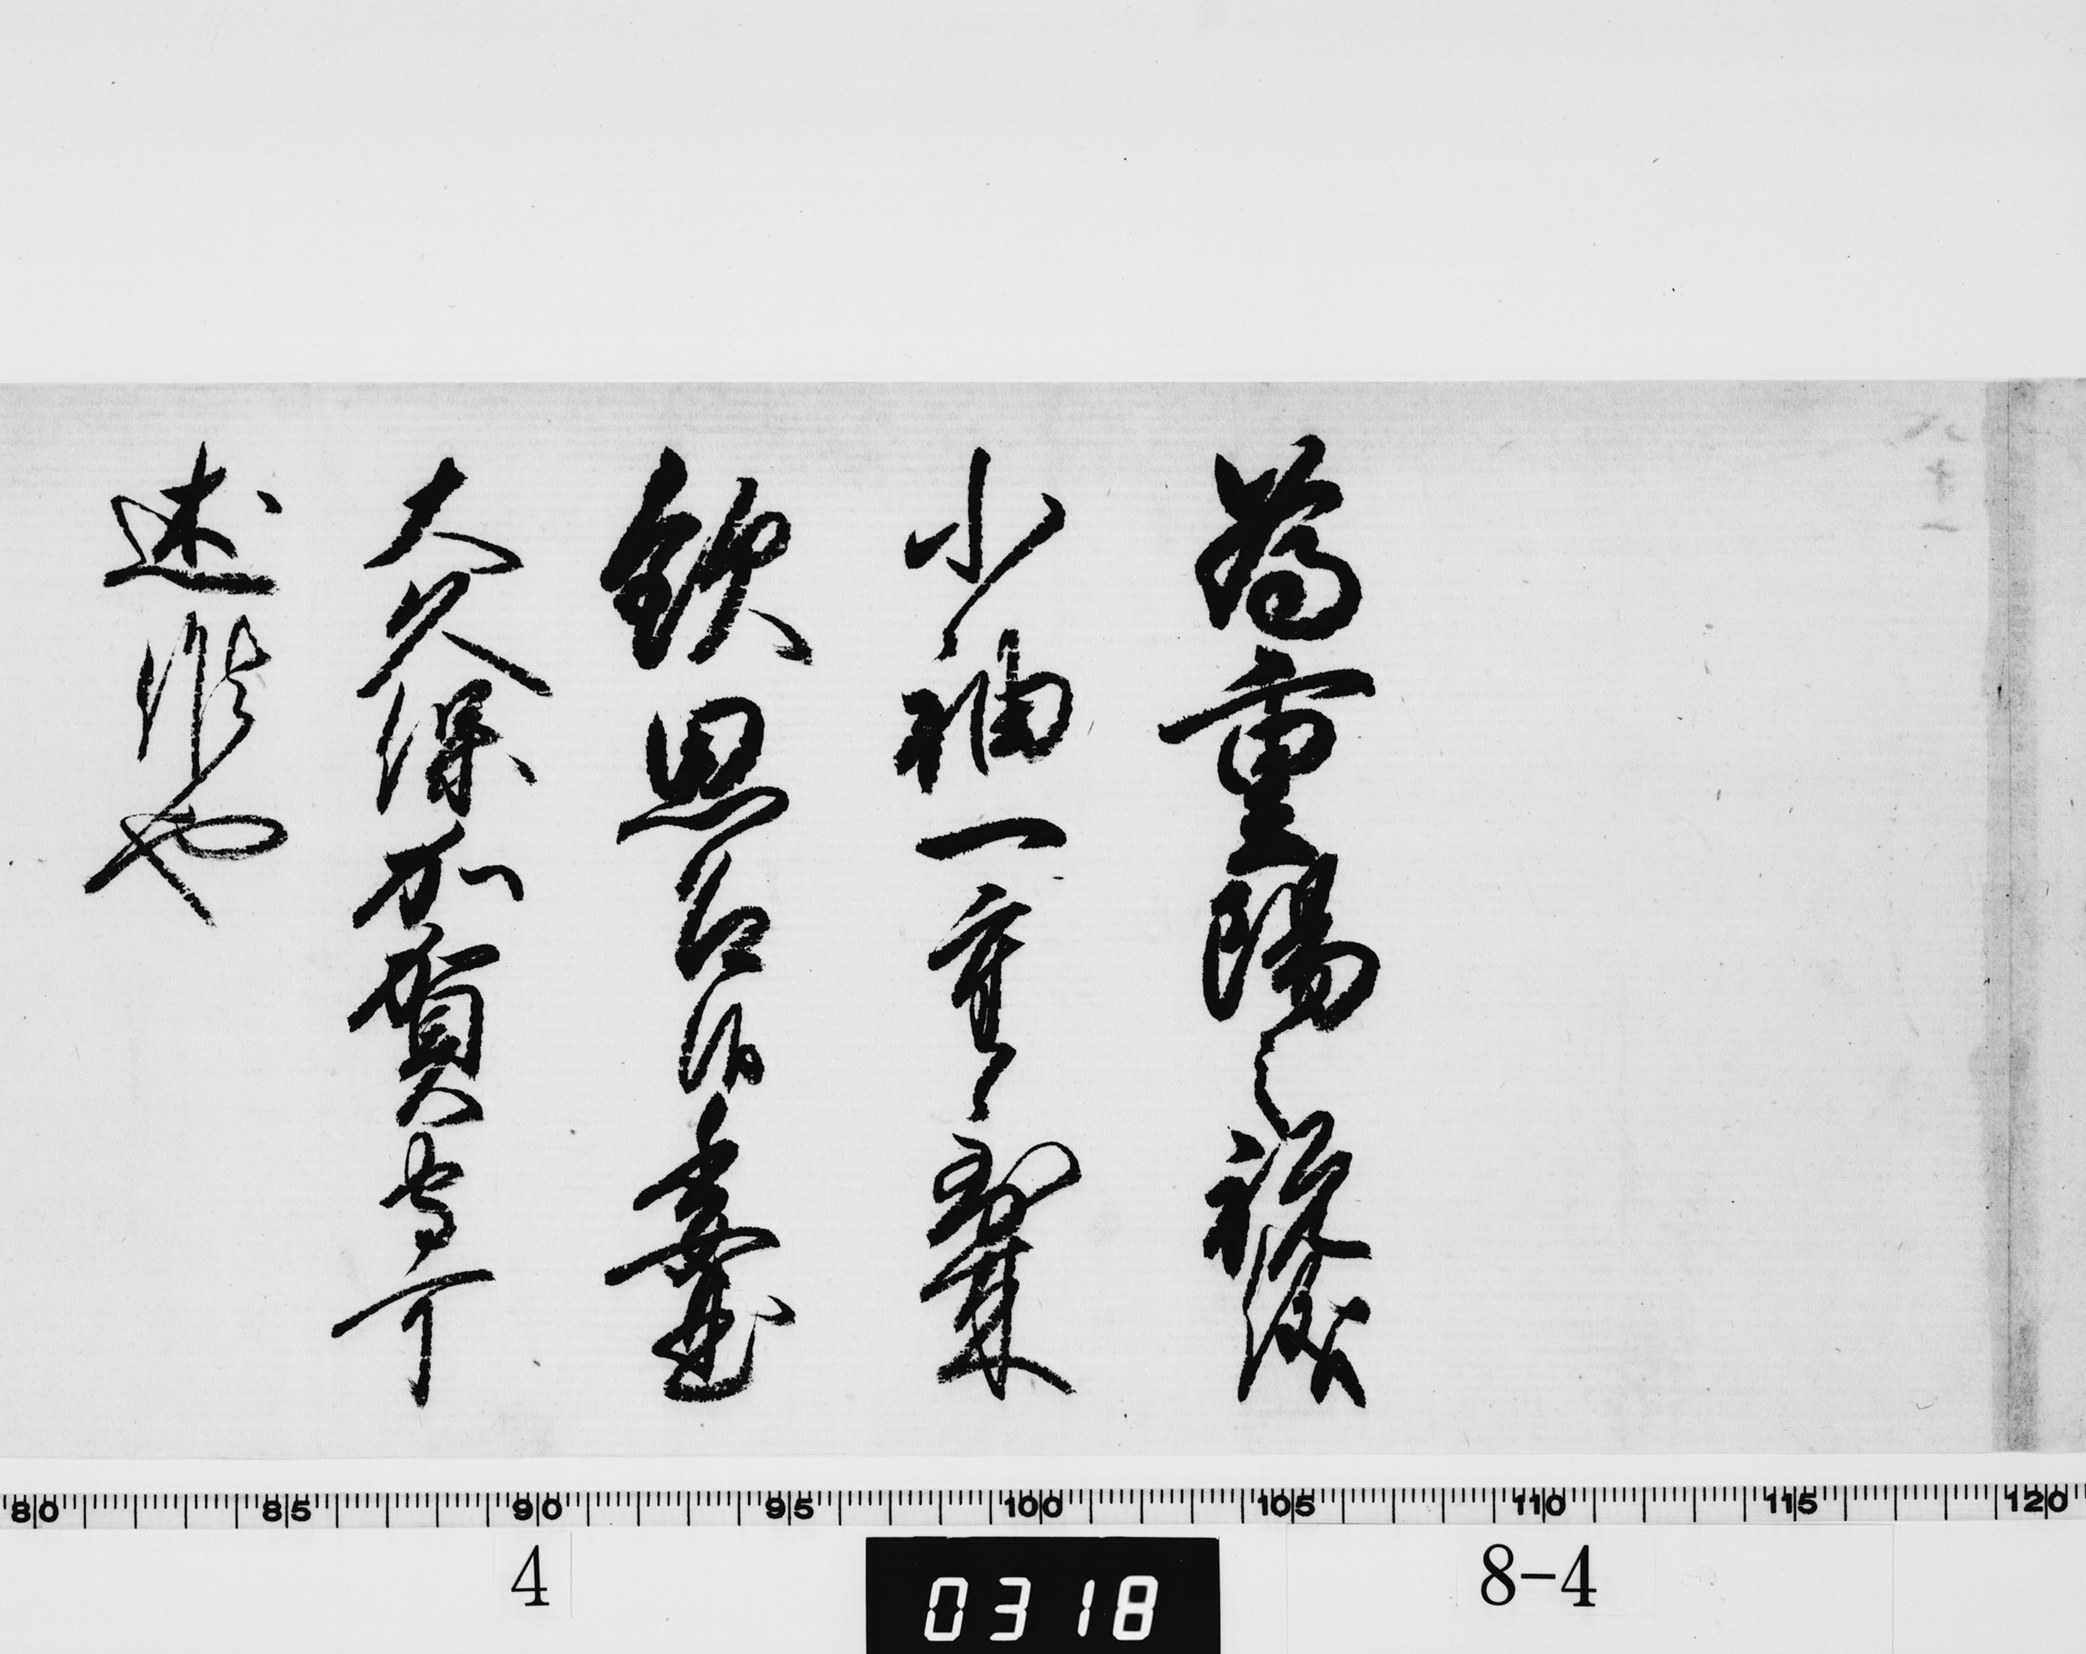 八十一
為重陽之祝儀
小袖一重到来
歓思召候委曲
大久保加賀守可
述候也
80 85 90 95 100 105 110 115 120
4 0318 8-4